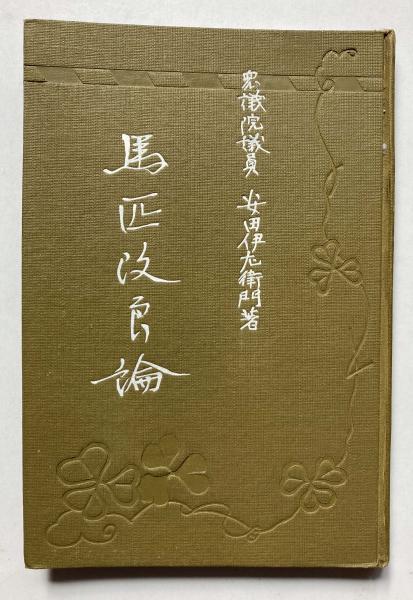 衆議院議員 安田伊左衛門著
馬匹改良論